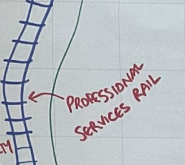 PROFESSIONAL
SERVICES RAIL